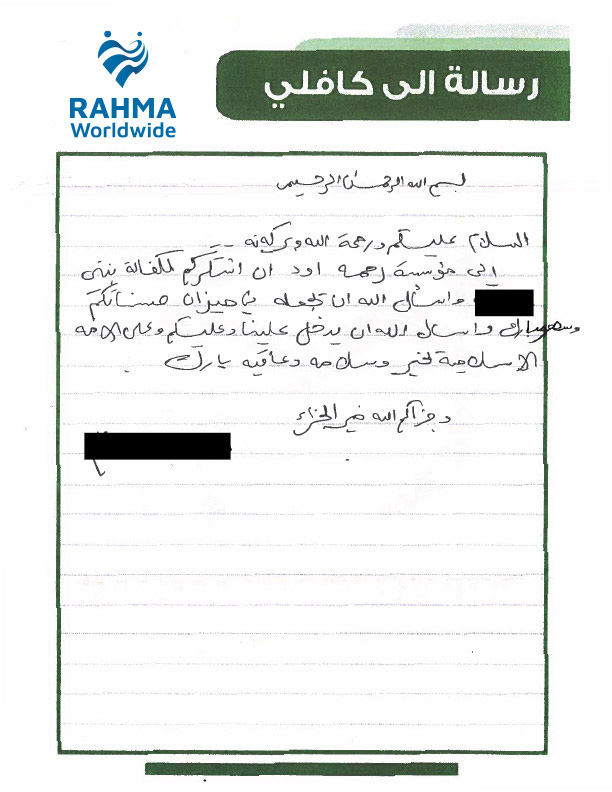 RAHMA
Worldwide
رسالة الى كافلي
بسم الله الرحمن الرحيم
السلام عليكم ورحمة الله وبركاته
إلى مؤسسة رحمه اود ان اشكركم لكفالة بنتي
واسأل الله ان تجعله في ميزان حسناتكم
واسال الله ان يدخل علينا وعليكم وعلى الامه
الاسلامية بخير وسلامه وعافيه يارب
وجزاكم الله خير الجزاء